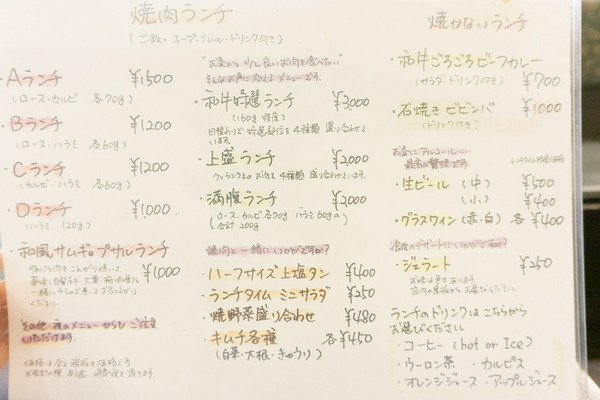 焼肉ランチ
(ご飯・スープ・ナムル・ドリンク付き)
・Aランチ ¥1500
(ロース・カルビ 各70g)
・Bランチ ¥1200
(ロース・ハラミ 各60g)
・Cランチ ¥1200
(カルビ・ハラミ 各60g)
・Dランチ ¥1000
(ハラミ 120g)
・和風サムギョプサルランチ
¥1000
一緒に
ください
その他、夜のメニューからもご注文
いただけます。
価格は全て税抜き価格です。
"お昼から少し良いお肉を食べたい"
そんなお声に応えるメニューです。
・和牛特選ランチ ¥3000
(160g程度)
日替わりで特選部位を4種類盛り合わせて
います。
・上盛ランチ ¥2000
ワンランク上のお肉を4種類盛り合わせています。
・満腹ランチ ¥2000
(ロース、カルビ各70g ハラミ60g
合計200g)
焼肉と一緒にいかがですか?
・ハーフサイズ上塩タン ¥400
・ランチタイムミニサラダ ¥250
・焼野菜盛り合わせ ¥480
・キムチ各種 各¥450
(白菜・大根・きゅうり)
焼かないランチ
・和牛ごろごろビーフカレー
(サラダ・ドリンク付き) ¥700
・石焼きビビンバ ¥1000
(ドリンク付き)
お昼にアルコール…
最高の贅沢です。
・生ビール (中) ¥500
(小) ¥400
・グラスワイン(赤・白) 各¥400
食後のデザートにいかがですか?
・ジェラート ¥250
ランチのドリンクはこちらから
お選びください
・コーヒー (hot or Ice)
・ウーロン茶 ・カルピス
・オレンジジュース ・アップルジュース